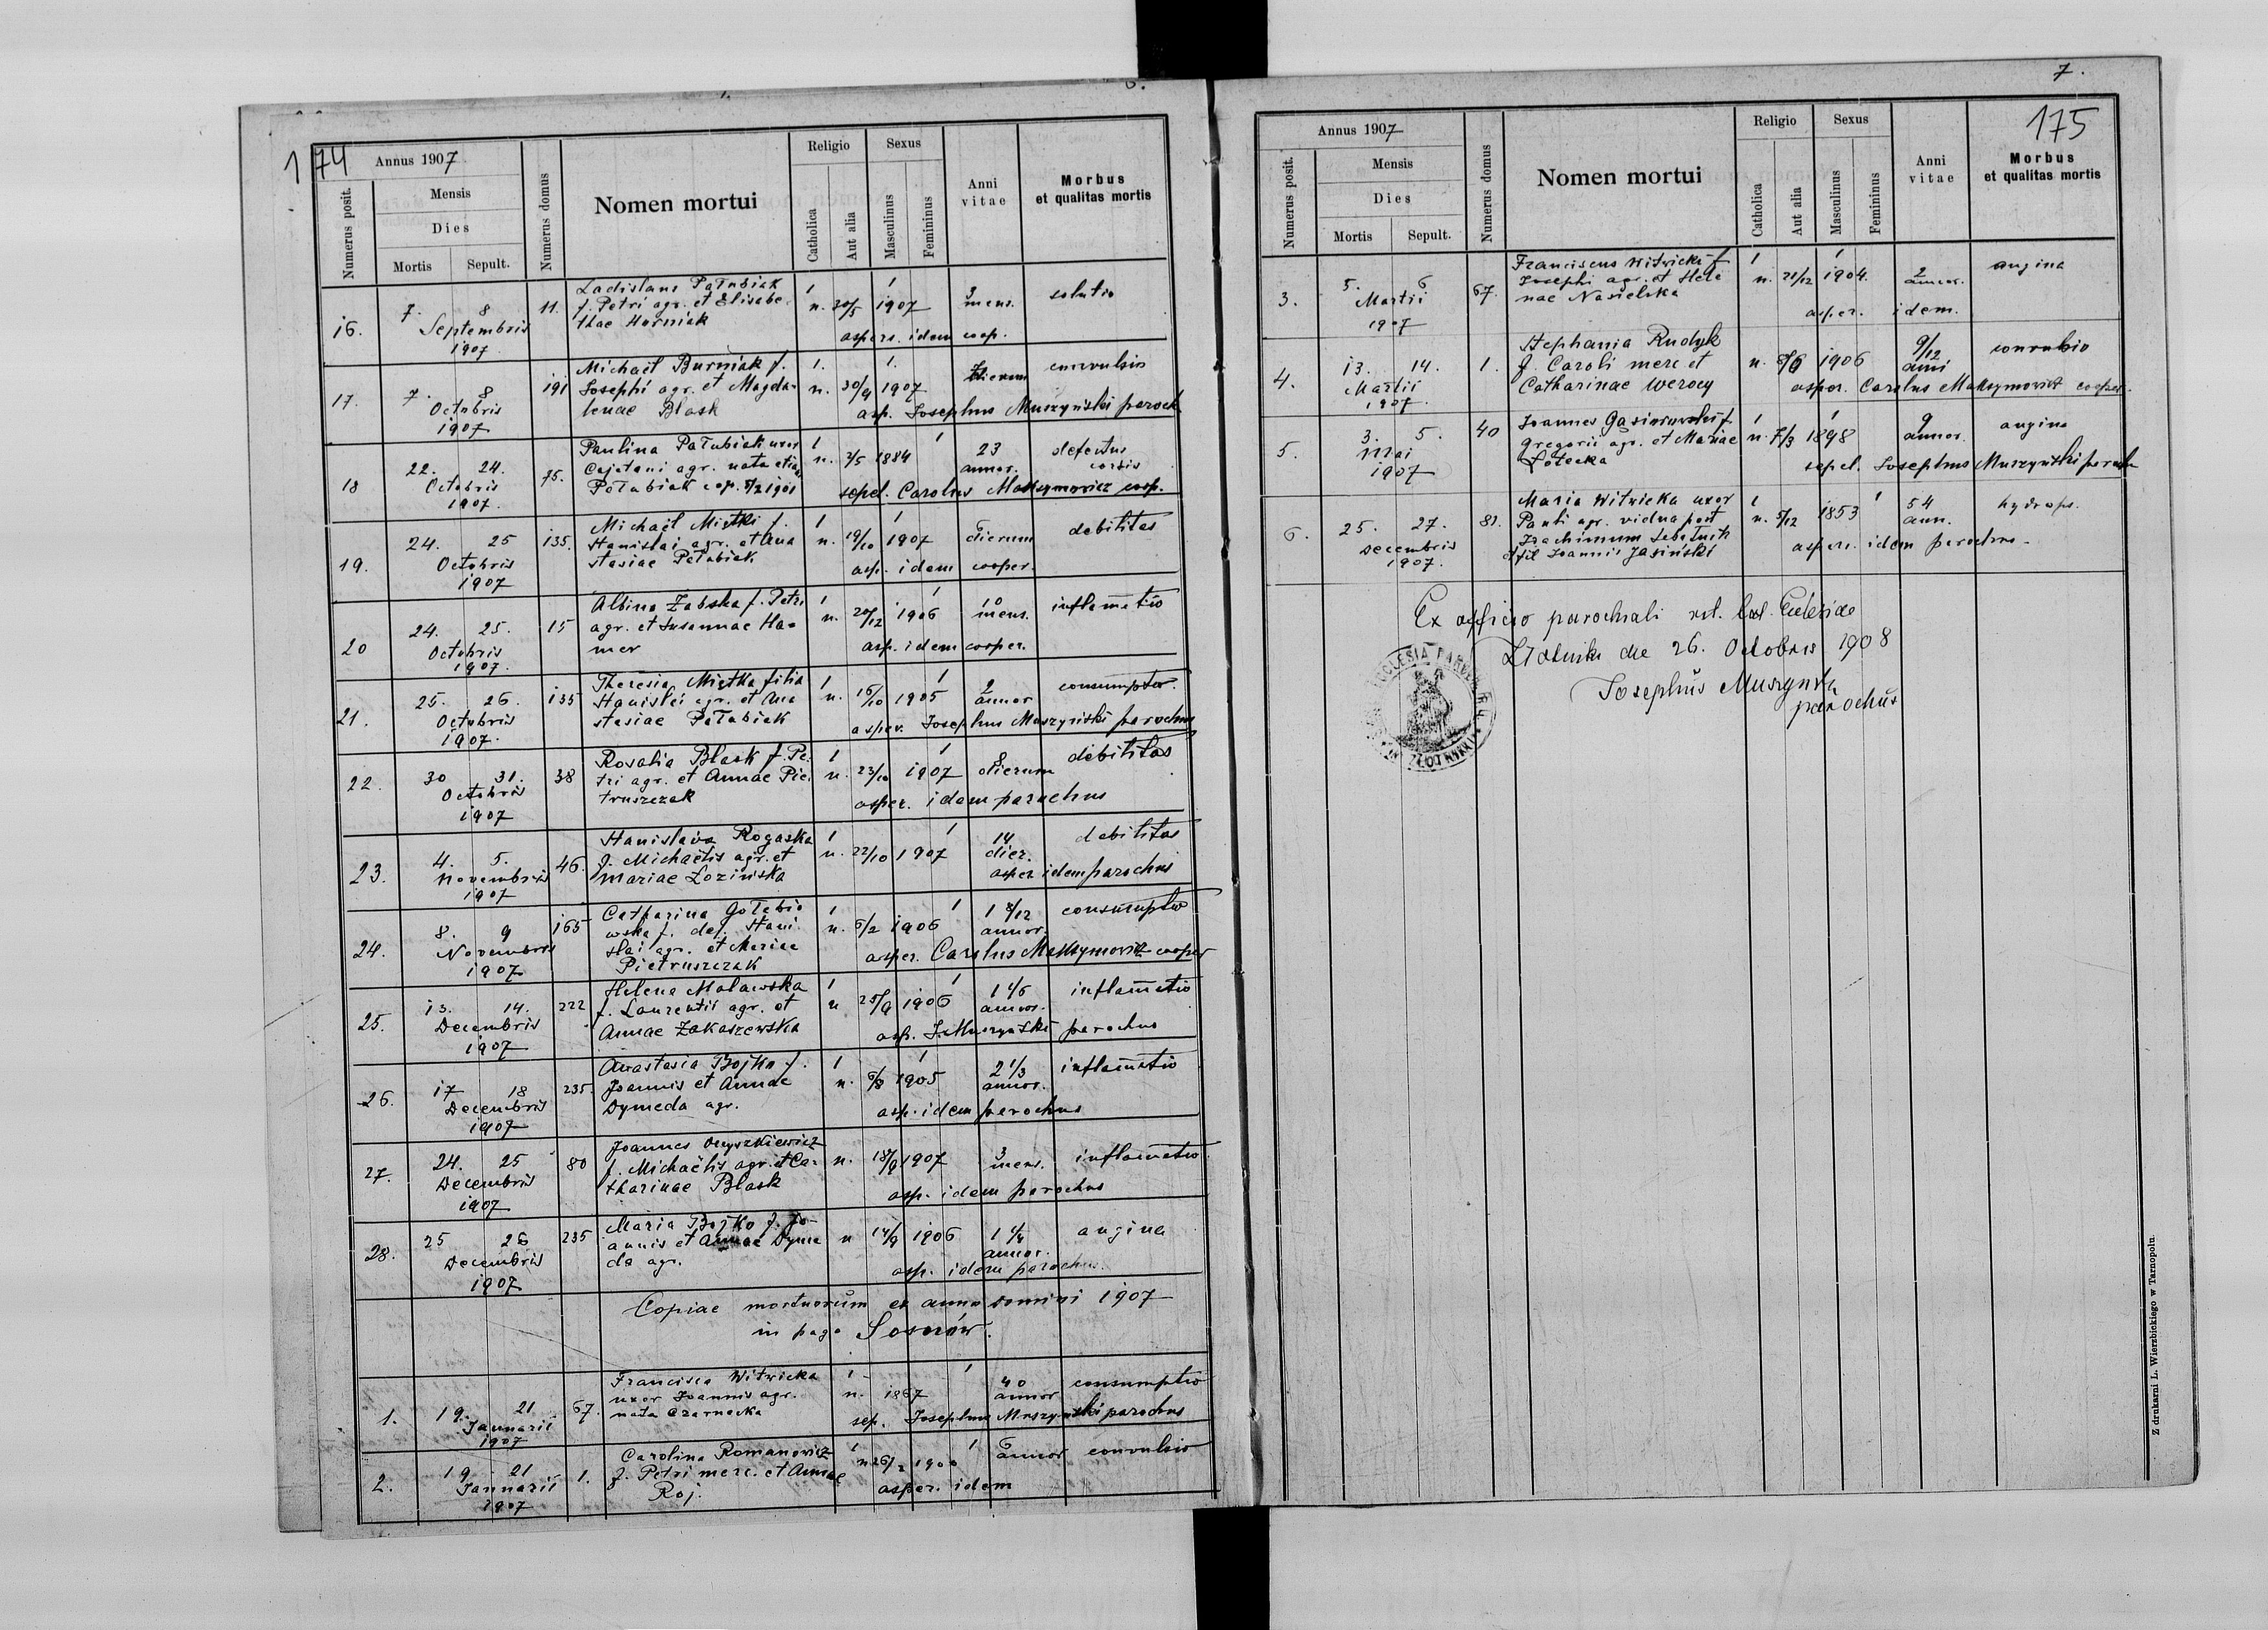 174
Annus 1907
Numerus posit.
Mensis
Dies
Mortis
Sepult.
Numerus domus
Nomen mortui
Religio
Catholica
Aut alia
Sexus
Masculinus
Femininus
Anni vitae
Morbus et qualitas mortis
16. 7. 8 Septembris 1907 11.
Ladislaus Pałubiak
f. Petri agr. et Elisabe-
thae Horniak
1 1
n. 20/5 1907 3 mens. solutio
aspers. idem coop.
17. 7. 8 Octobris 1907 191
Michaël Burniak f.
Josephi agr. et Magda-
lenae Błask
1. 1.
n. 30/9 1907 7 dierum convulsio
asp. Josephus Muszyński paroch
18 22. 24. Octobris 1907. 75.
Paulina Pałubiak uxor
Cajetani agr. nata etiam
Pałubiak cop.
1 1
n. 2/5 1884 23 annor. defectus cordis
sepel. Carolus Maksymowicz coop.
19. 24. 25 Octobris 1907 135.
Michaël Miętki f.
Stanislai agr. et Ana
stasiae Pałubiak
1 1
n. 19/10 1907 6 dierum debilitas
asp. idem cooper.
20 24. 25. Octobris 1907. 15
Albina Żabska f. Petri
agr. et Susannae Ha-
mer
1 1
n. 20/12 1906 10 mens. inflam̄atio
asp. idem cooper.
21. 25. 26. Octobris 1907. 135
Theresia Miętka filia
Stanislai agr. et Ana
stasiae Pałubiak
1 1
n. 15/10 1905 2 annor consumptio.
asper. Josephus Muszyński parochus
22. 30 31. Octobris 1907 38
Rosalia Błask f. Pe-
tri agr. et Annae Pie-
truszczak
1 1
n. 23/10 1907 8 dierum debilitas
asper. idem parochus
23. 4. 5. Novembris 1907 46.
Stanislava Rogaska
f. Michaëlis agr. et
Mariae Łozińska
1 1
n. 22/10 1907 14 dier. debilitas
asper idem parochus
24. 8. 9 Novembris 1907 165
Catharina Gołębio
wska f. def. Stani
slai agr. et Mariae
Pietruszczak
1 1
n. 6/2 1906 1 8/12 annor. consumptio
asper. Carolus Maksymowicz cooper
25. 13. 14. Decembris 1907 222
Helena Malawska
f. Laurentii agr. et
Annae Zakaszewska
1 1
n 25/9 1906 1 1/6 annor. inflam̄atio
asp. J. Muszyński parochus
26. 17 18 Decembris 1907 235.
Anastasia Bojko f.
Joannis et Annae
Dymeda agr.
1 1
n. 6/8 1905 2 1/3 annor. inflam̄atio
asp. idem parochus
27. 24. 25 Decembris 1907 80
Joannes Onyszkiewicz
f. Michaëlis agr. et Ca-
tharinae Błask
n. 18/9 1907 3 mens. inflam̄atio
asp. idem parochus
28. 25 26 Decembris 1907 235
Maria Bojko f. Jo-
annis et Annae Dyme
da agr.
n 14/9 1906 1 1/4 annor. angina
asp. idem parochus.
Copiae mortuorum ex anno Domini 1907
in pago Sosnów.
1. 19. 21 Januarii 1907 67.
Francisca Witwicka
uxor Joannis agr.
nata Czarnecka
1 1
n. 1867 40 annor consumptio
sep. Josephus Muszyński parochus
2. 19 21 Januarii 1907 1.
Carolina Romanowicz
f. Petri merc. et Annae
Roj.
1 1
n 26/2 1900 6 annor convulsio
asper. idem
7.
175
Annus 1907
Numerus posit.
Mensis
Dies
Mortis
Sepult.
Numerus domus
Nomen mortui
Religio
Catholica
Aut alia
Sexus
Masculinus
Femininus
Anni vitae
Morbus et qualitas mortis
3. 5. 6 Martii 1907 67.
Franciscus Witwicki f
Josephi agr. et Hele
nae Nasielska
1 1
n. 21/12 1904. 2 annor. angina
asper. idem.
4. 13. 14. Martii 1907. 1.
Stephania Rudyk
f. Caroli merc et
Catharinae Werocy
n. 8/6 1906 9/12 anni convulsio
asper. Carolus Maksymowicz cooper.
5. 3. 5. Mai 1907 40
Joannes Gąsiorowski f.
Gregorii agr. et Mariae
Łotecka
1 1
n. 7/3 1898 9 annor. angina
sepel. Josephus Muszyński paroch
6. 25. 27. Decembris 1907. 81.
Maria Witwicka uxor
Pauli agr. vidua post
d fil Joannis Jasiński
1 1
n. 5/12 1853 54 ann. hydrops.
asper. idem parochus.
Ex officio parochiali rit. lat. Ecclesiae
Złotniki die 26. Octobris 1908
Josephus Muszyński
parochus
Z drukarni L. Wierzbickiego w Tarnopolu.